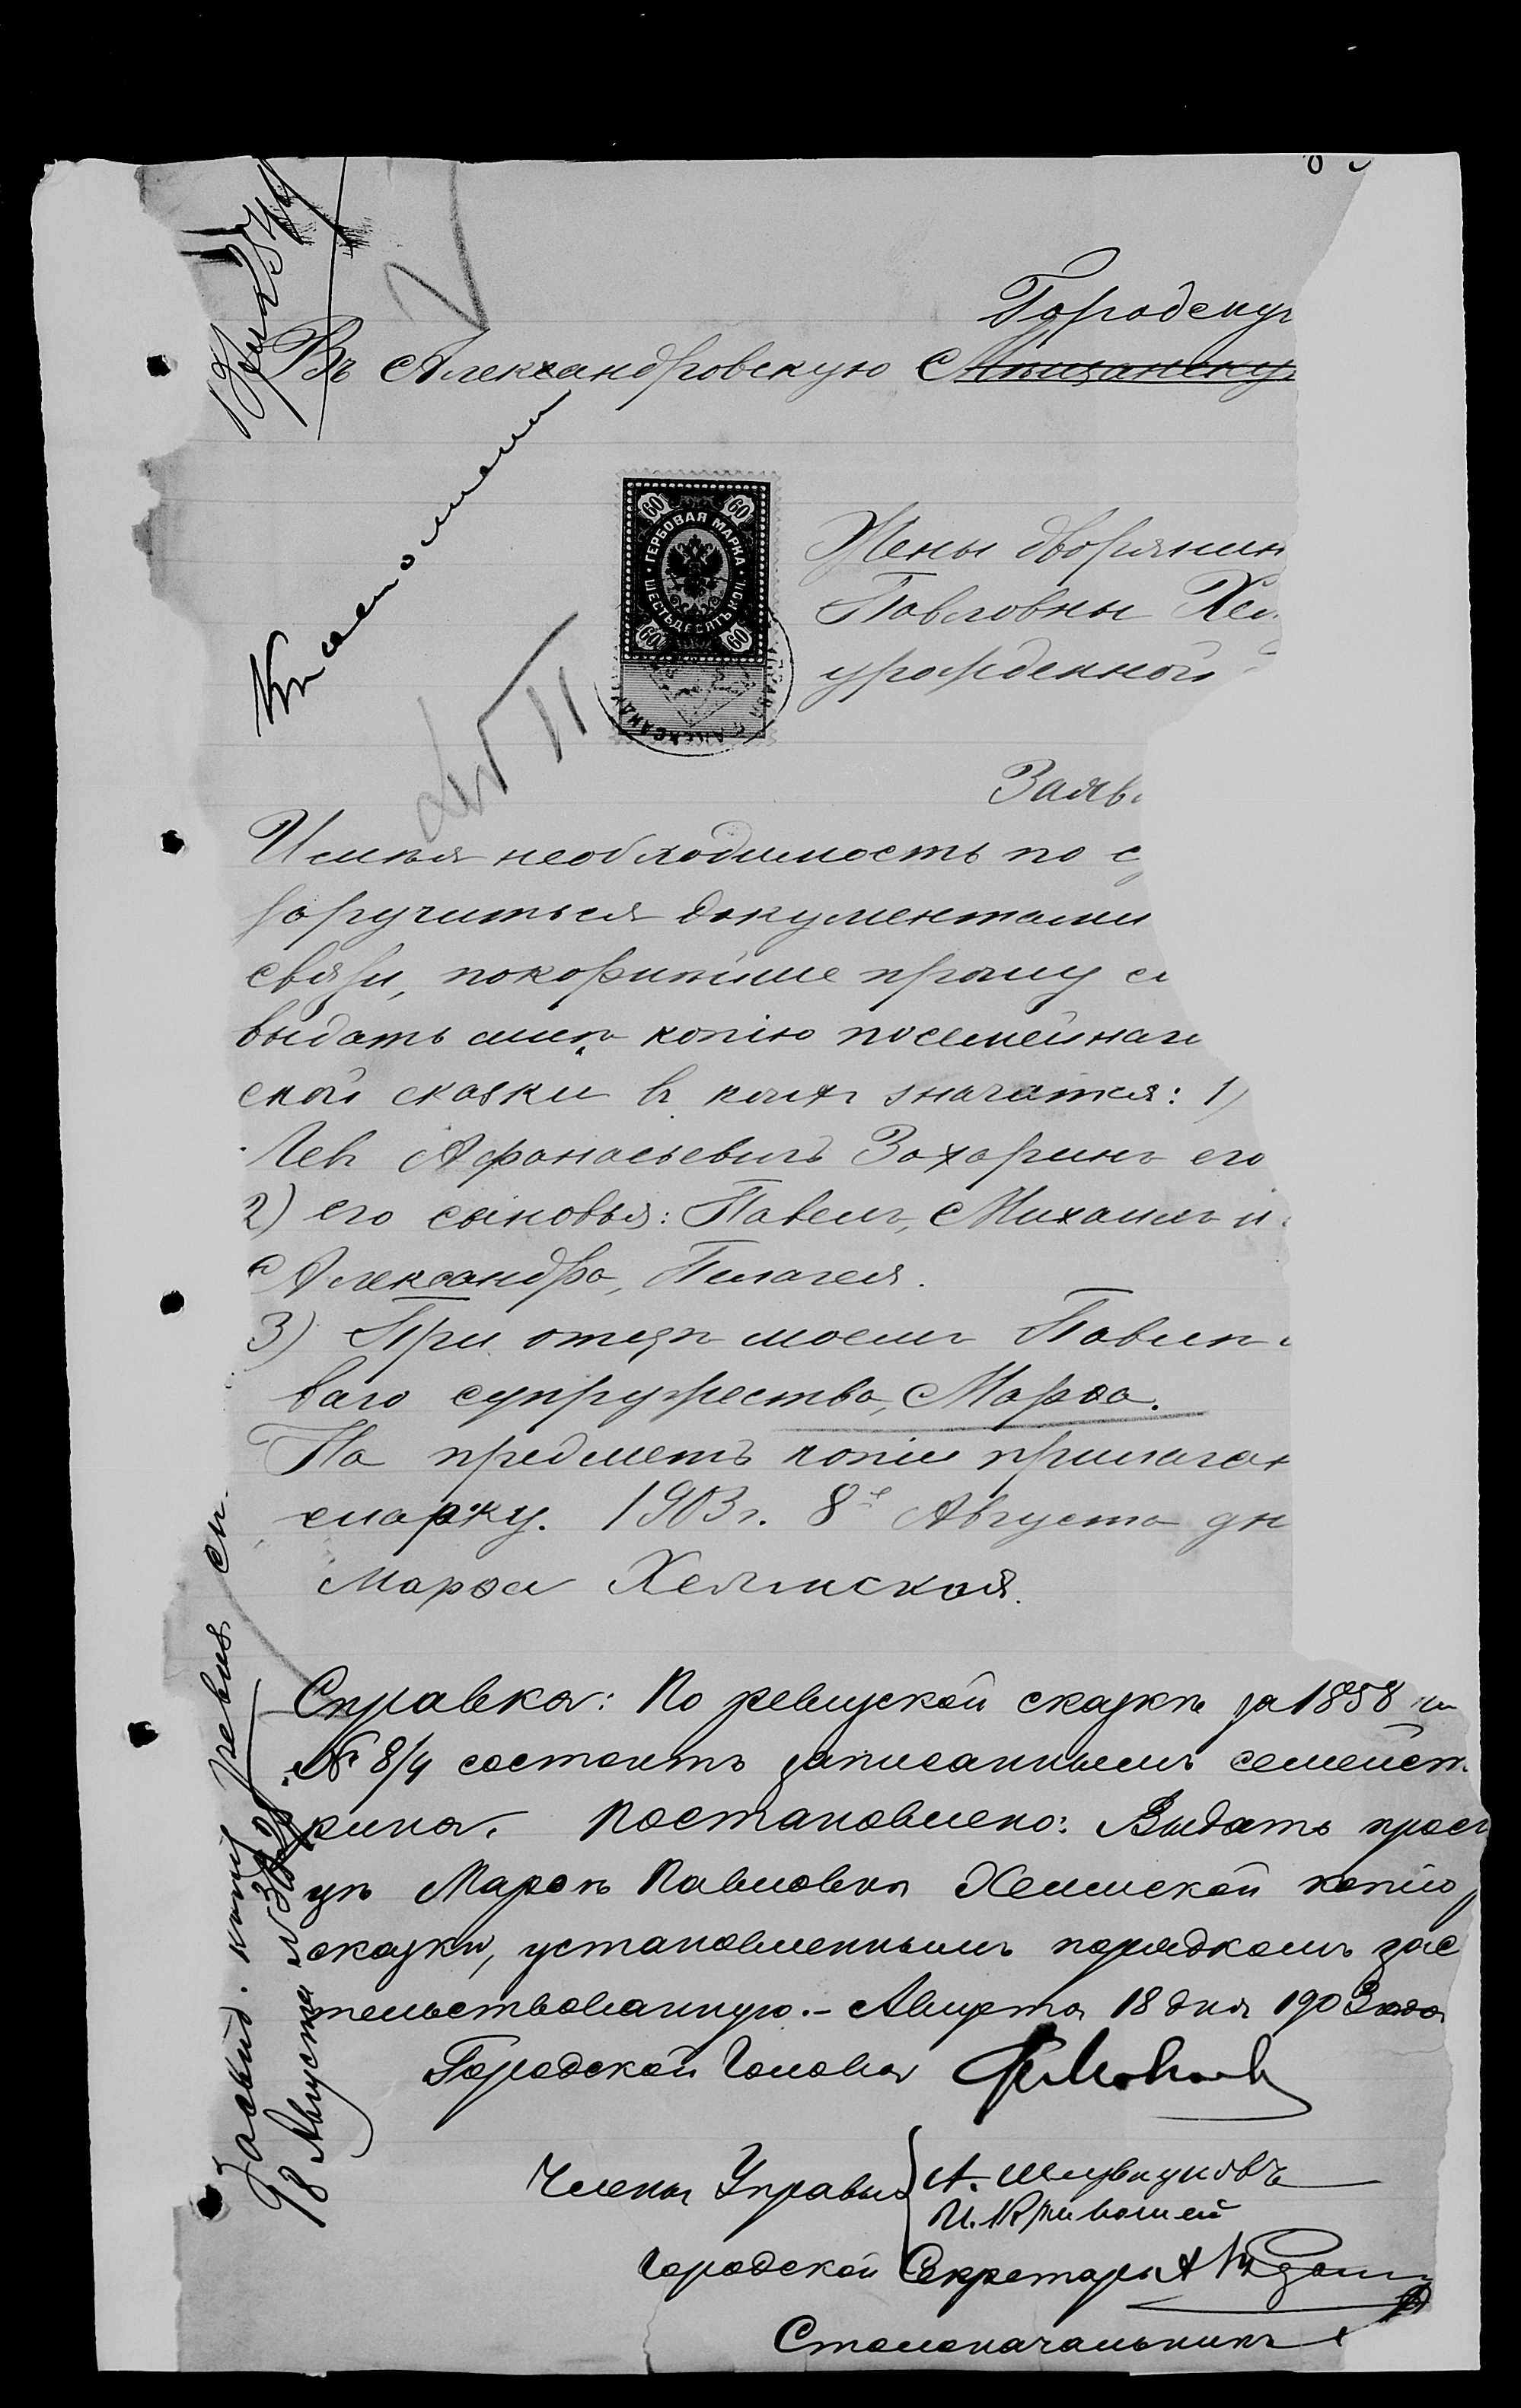 Городску
Въ Александровскую Мѣщанску
60 60
ГЕРБОВАЯ МАРКА
ШЕСТЬДЕСЯТЪ КОП.
60 60
Жены дворянин
Павловны Хел
урожденной
Заяв
Имѣя необходимость по с
заручиться документами
связи, покорнѣйше прошу
выдать мнѣ копію посемейнаг
ской сказки въ коихъ значатся: 1)
Левъ Афанасьевичъ Захаринъ его
2) его сыновья: Павелъ, Михаилъ и
Александра, Пелагея.
3) При отцѣ моемъ Павлѣ
ваго супружества, Марѳа.
На предметъ копіи прилагаю
марку. 1903 г. 8го Августа дн
Марѳа Хелмская.
Справка: По ревизской сказкѣ за 1858 г
№ 8/4 состоитъ записаннымъ семейст
рина. Постановлено: Выдать прос
цѣ Марѳѣ Павловнѣ Хелмской копію
сказки, установленнымъ порядкомъ зас
тельствованную.- Августа 18 дня 1903 года
Городской Голова
Члены Управы
И. Кривошей
Городской Секретарь
Столоначальникъ
18 Августа